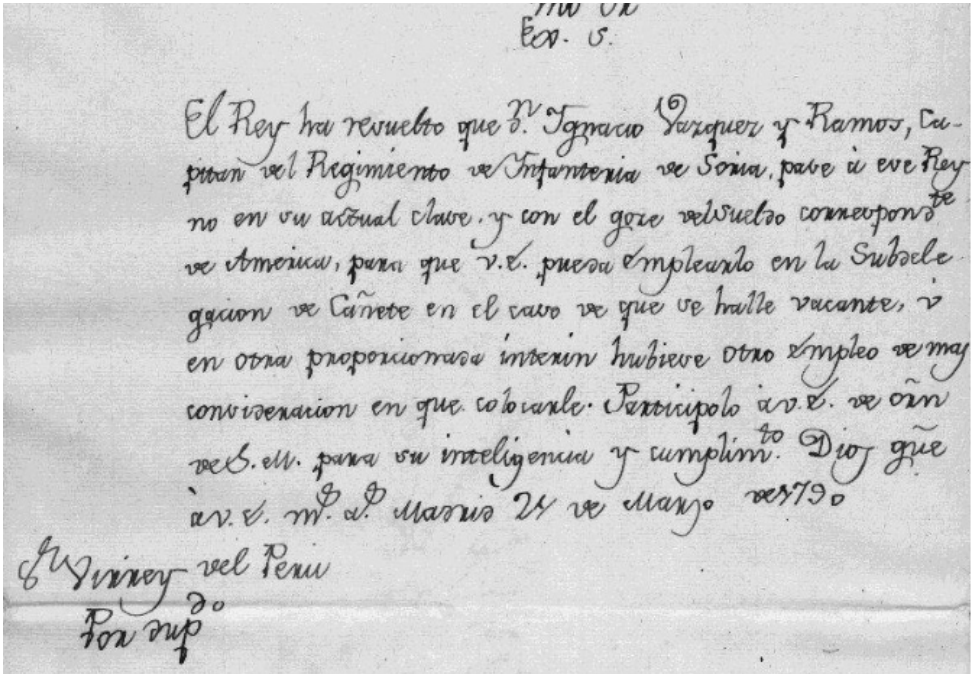 Exmo. S.
El Rey ha resuelto que Dn. Ignacio Vazquez y Ramos, Ca-
pitan del Regimiento de Infanteria de Soria, pase à ese Rey
no en su actual clase, y con el goze del Sueldo correspondte
de America, para que V.E. pueda emplearlo en la Subdele
gacion de Cañete en el caso de que se halle vacante, ù
en otra proporcionada interin hubiese otro empleo de mas
consideracion en que colocarle. Participolo à V.E. de orñ
de S.M. para su inteligencia y cumplimto. Dios güe
à V.E. ms. as. Madrid 24 de Marzo de 1790
Sr Virrey del Peru
Por dupdo